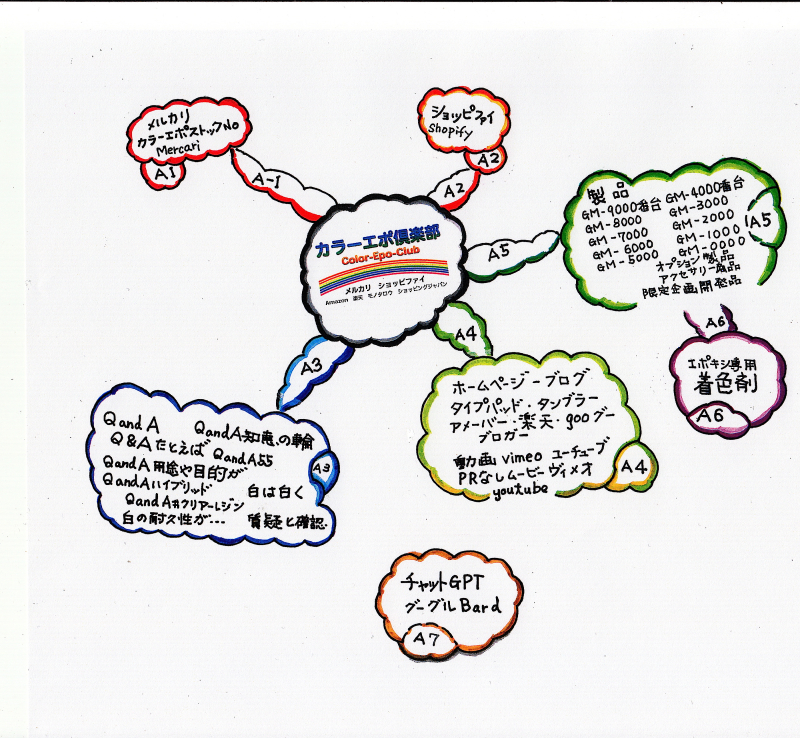 メルカリ
カラーエポストックNo
Mercari
A1
A-1
ショッピファイ
shopify
A2
A2
カラーエポ倶楽部
Color-Epo-Club
メルカリ ショッピファイ
Amazon 楽天 モノタロウ ショッピングジャパン
A5
製品
GM-9000番台 GM-4000番台
GM-8000 GM-3000
GM-7000 GM-2000
GM-6000 GM-1000
GM-5000 GM-0000
オプション製品
アクセサリー商品
限定企画開発品
A5
A6
エポキシ専用
着色剤
A6
A3
QandA QandA知恵の輪
Q&Aたとえば QandA55
QandA用途や目的が
QandAハイブリッド 白は白く
QandAクリアーレジン
白の耐久性が… 質疑と確認.
A3
A4
ホームページーブログ
タイプパッド・タンブラー
アメーバー・楽天・gooグー
ブロガー
動画 vimeo ユーチューブ
PRなしムービー ヴィメオ
youtube
A4
チャットGPT
グーグルBard
A7